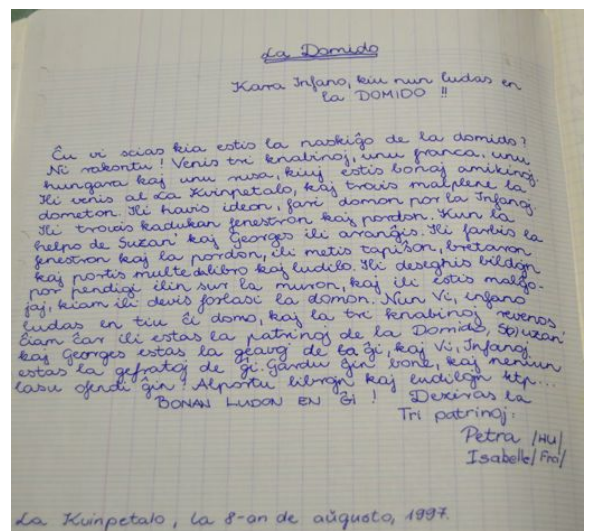 La Domido
Kara Infano, kiu nun ludas en
la DOMIDO !!
Ĉu vi scias kia estis la naskiĝo de la domido?
Ni rakontu! Venis tri knabinoj, unu franca, unu
hungara kaj unu rusa, kiuj estis bonaj amikinoj.
Ili venis al La Kvinpetalo, kaj trovis malplene la
dometon. Ili havis ideon, fari domon por la Infanoj
Ili trovis kadukan fenestron kaj pordon. Kun la
helpo de Suzan' kaj Georges ili aranĝis. Ili farbis la
fenestron kaj la pordon, ili metis tapiŝon, bretaron
kaj portis multe da libro kaj ludilo. Ili deseghis bildojn
por pendigi ilin sur la muron, kaj ili estis malgo-
jaj, kiam ili devis forlasi la domon. Nun Vi, infano
ludas en tiu ĉi domo, kaj la tri knabinoj revenos
ĉiam ĉar ili estas la patrinoj de la Domido,
kaj Georges estas la geavoj de ĝi, kaj Vi, Infanoj
estas la gefratoj de ĝi. Gardu ĝin bone, kaj neniun
lasu ofendi ĝin! Alportu librojn kaj ludilojn ktp...
BONAN LUDON EN ĜI ! Deziras la
Tri patrinoj:
Petra /HU/
Isabelle/Fra/
La Kvinpetalo, la 8-an de aŭgusto, 1997.